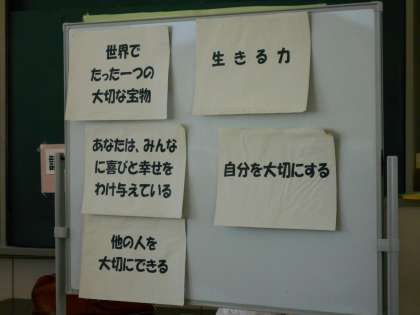 世界で
たった一つの
大切な宝物
生きる力
あなたは、みんな
に喜びと幸せを
わけ与えている
自分を大切にする
他の人を
大切にできる